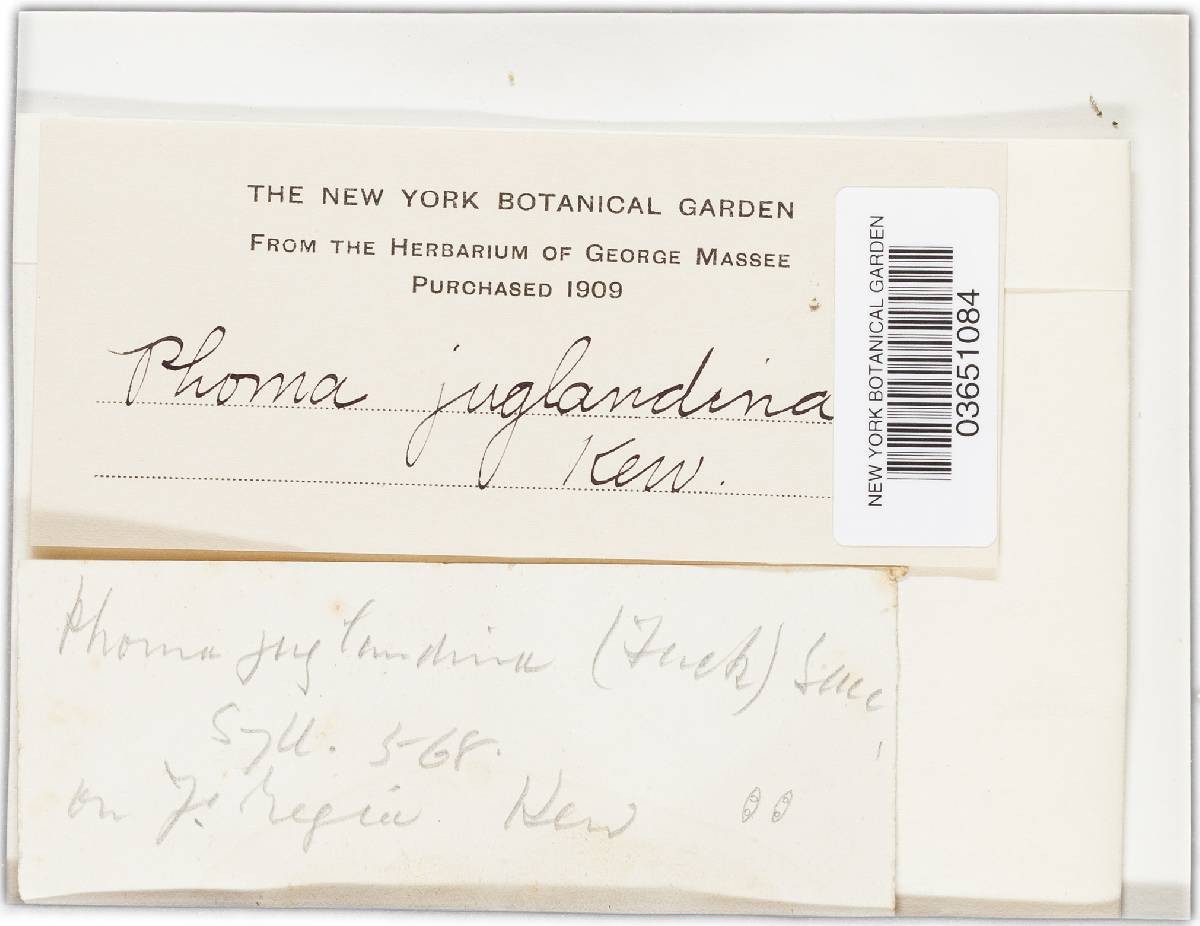 THE NEW YORK BOTANICAL GARDEN
FROM THE HERBARIUM OF GEORGE MASSEE
PURCHASED 1909
Phoma juglandina
Kew.
NEW YORK BOTANICAL GARDEN
03651084
Phoma juglandina (Fuck) Sacc
Syll. 568.
on J. regia Kew